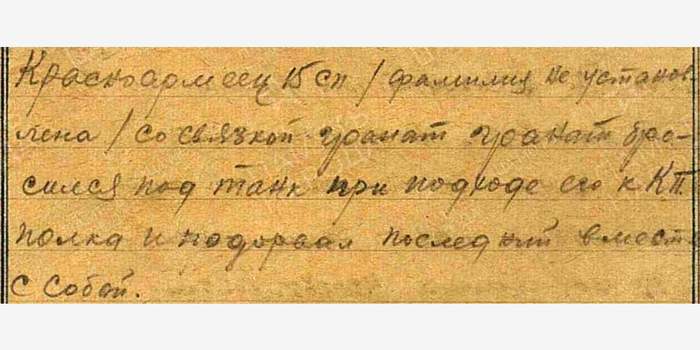 Красноармеец 15 сп /фамилия не установ
лена/ со связкой гранат гранат бро-
сился под танк при подходе его к КП
полка и подорвал последний вместе
с собой.